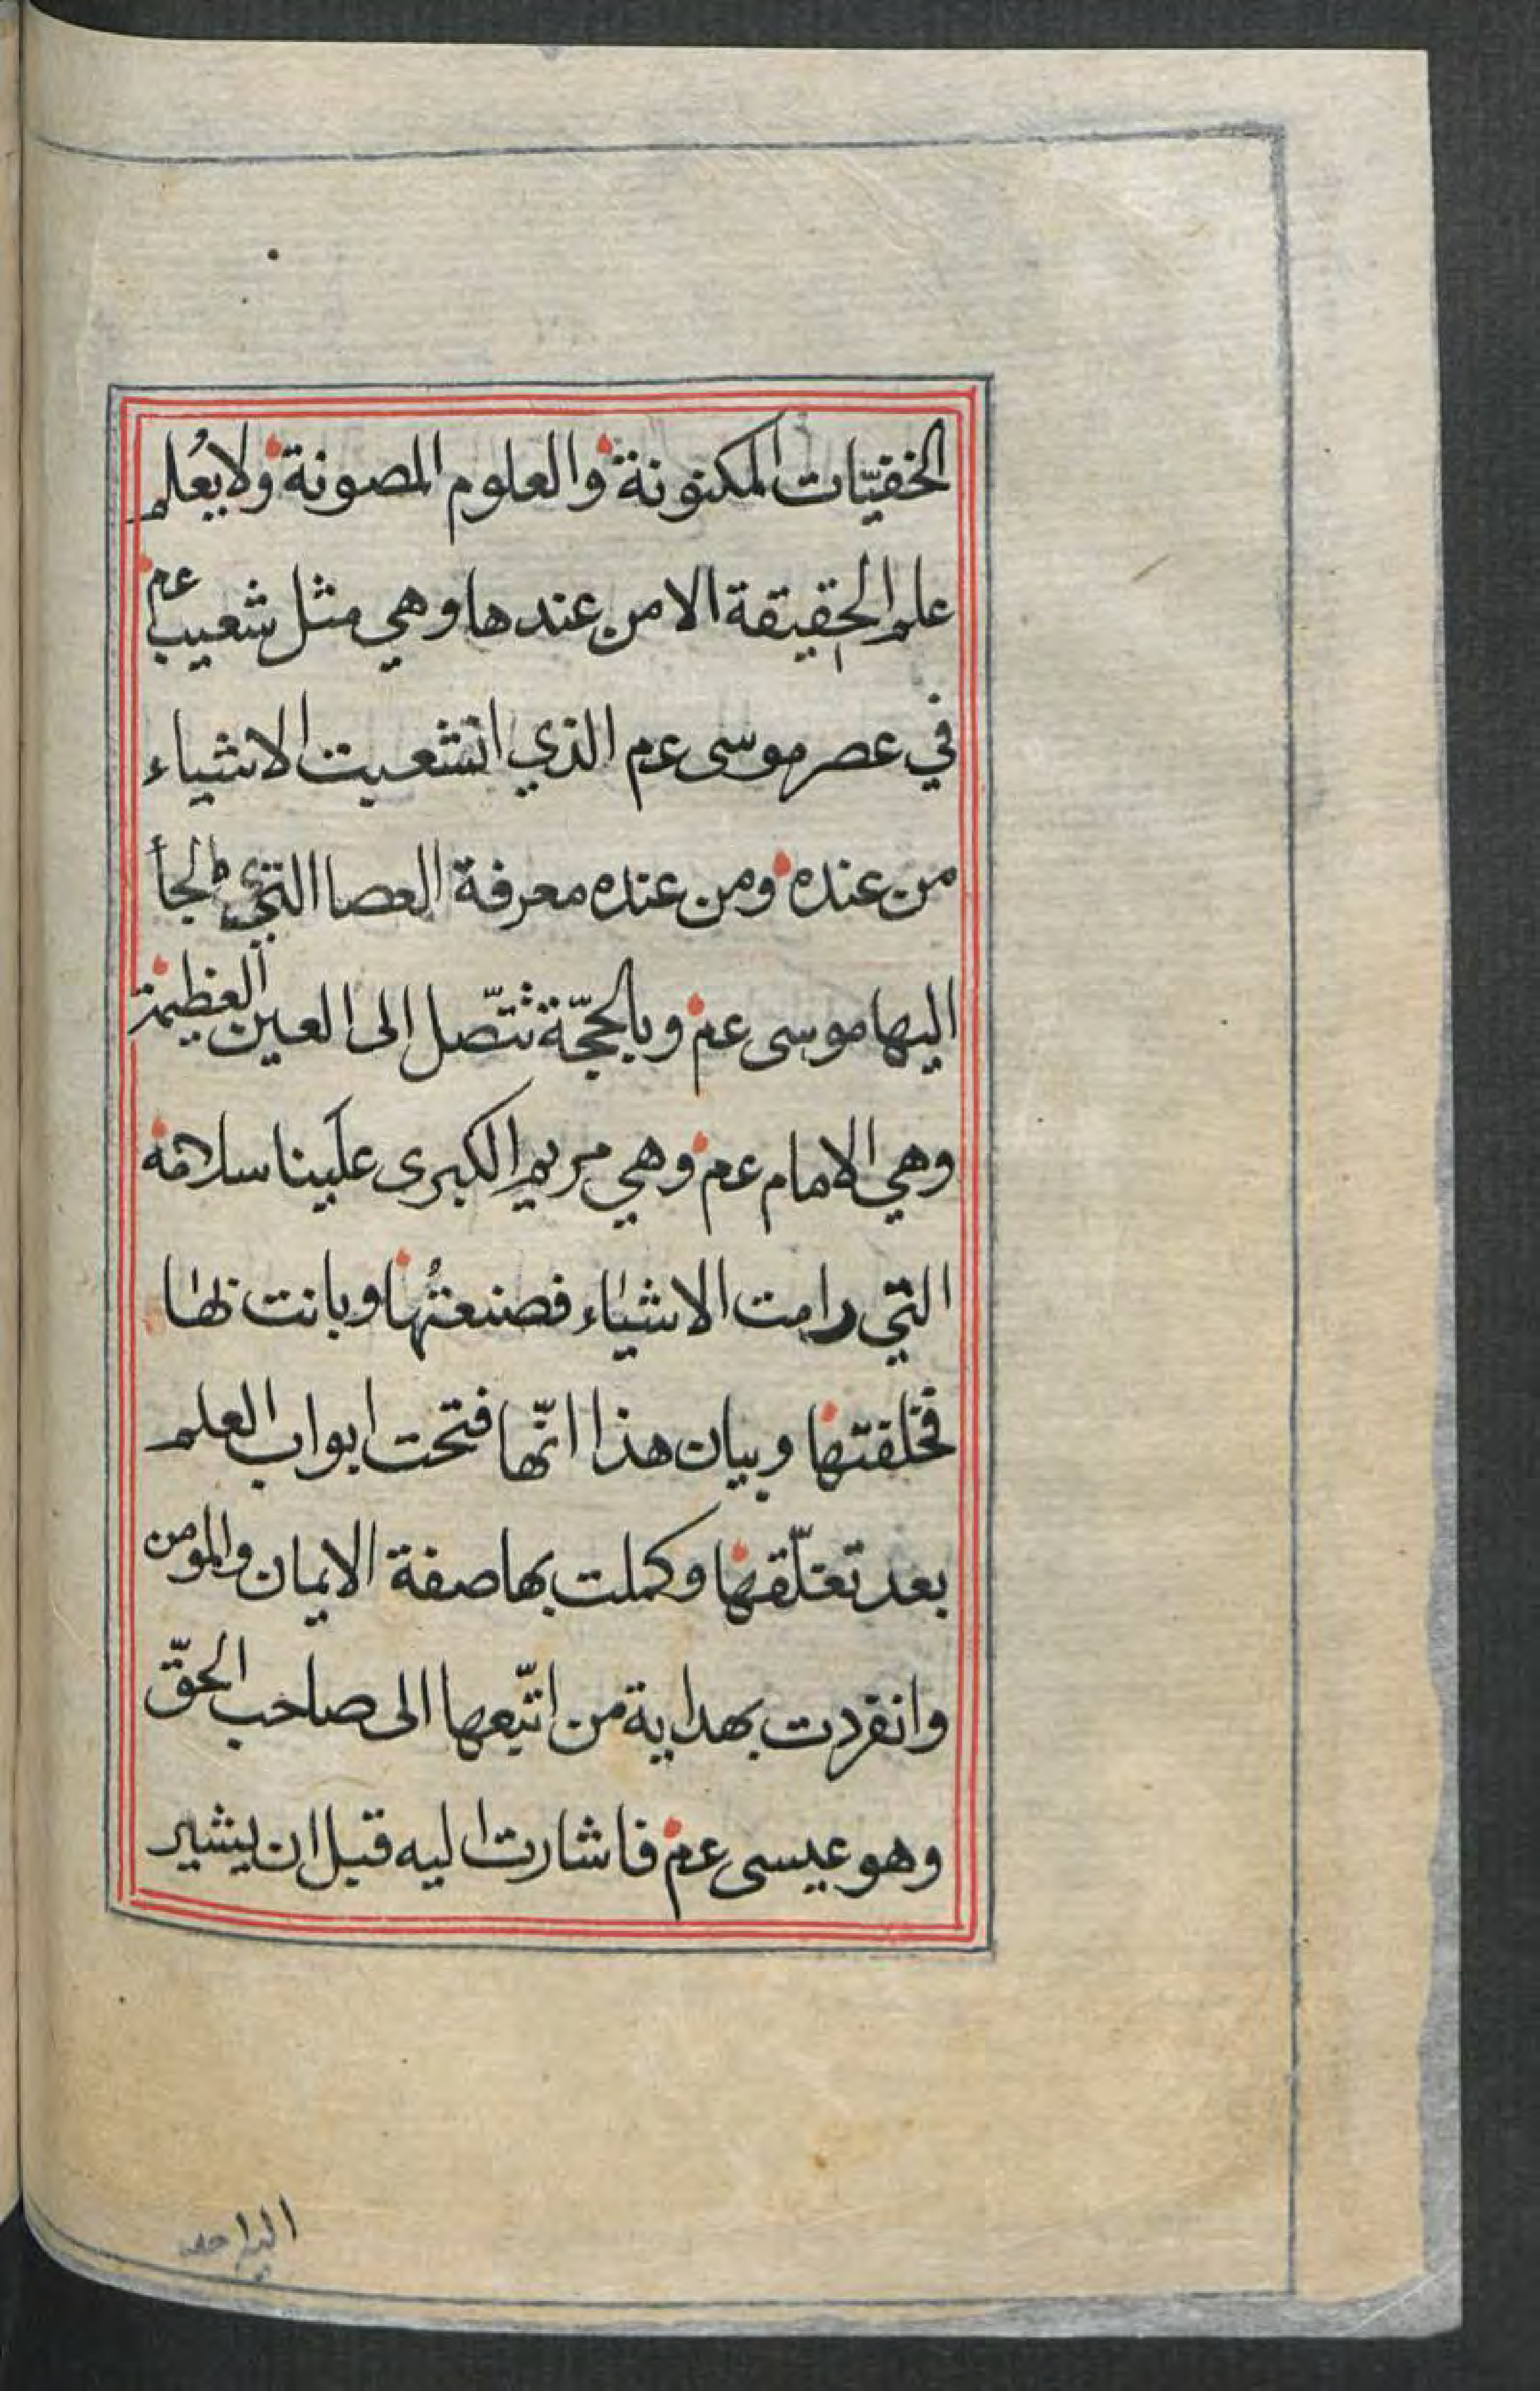 الخفيّات المكنونة والعلوم المصونة ولا يُعلم
علم الحقيقة الا من عندها وهي مثل شعيب عم
في عصر موسى عم الذي انشعبت الاشياء
من عنده ومن عنده معرفة العصا التي لجأ
اليها موسى عم وبالحجّة تتّصل الى العين العظيمة
وهي الامام عم وهي مريم الكبرى علَينا سلامه
التي رامت الاشياء فصنعتُها وبانت لها
فخلقتها وبيان هذا انّها فتحت ابواب العلم
بعد تغلّقها وكملت بها صفة الايمان والمومن
وانفردت بهداية من اتّبعها الى صاحب الحقّ
وهو عيسى عم فاشارت اليه قبل ان يشير